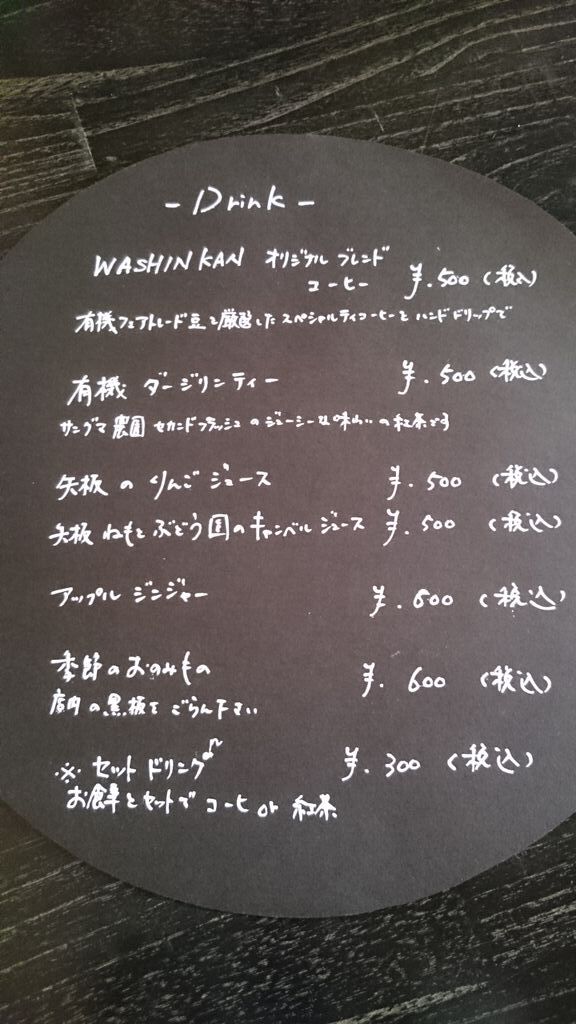 - Drink -
WASHINKAN オリジナル ブレンド
コーヒー ¥.500 (税込)
有機フェアトレード豆を厳選したスペシャルティコーヒーをハンドドリップで
有機 ダージリンティー ¥.500 (税込)
サングマ農園 セカンドフラッシュのジューシーな味わいの紅茶です
矢板のりんごジュース ¥.500 (税込)
矢板ねもとぶどう園のキャンベルジュース ¥.500 (税込)
アップルジンジャー ¥.600 (税込)
季節のおのみもの ¥.600 (税込)
店内の黒板をごらん下さい
※ セットドリンク♪ ¥.300 (税込)
お食事とセットで コーヒ or 紅茶